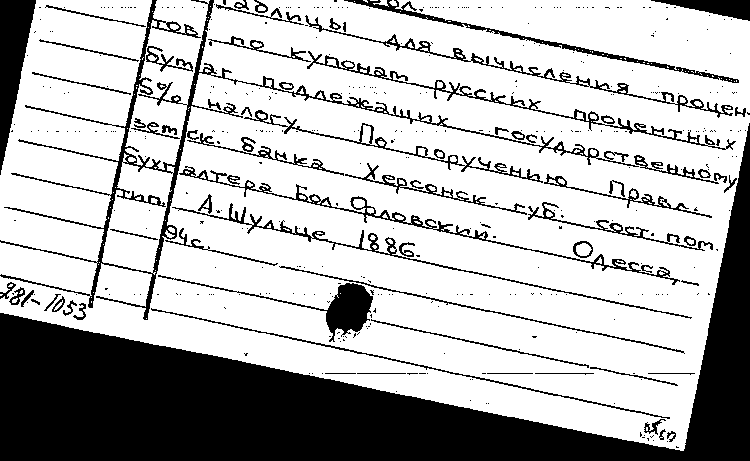 Таблицы для вычисления процен-
тов по купонам русских процентных
бумаг, подлежащих государственному
5% налогу. По поручению Правл.
земск. банка Херсонск. губ. сост. пом.
бухгалтера Бол. Орловский. Одесса,
тип. А. Шульце, 1886.
94с.
281-1053